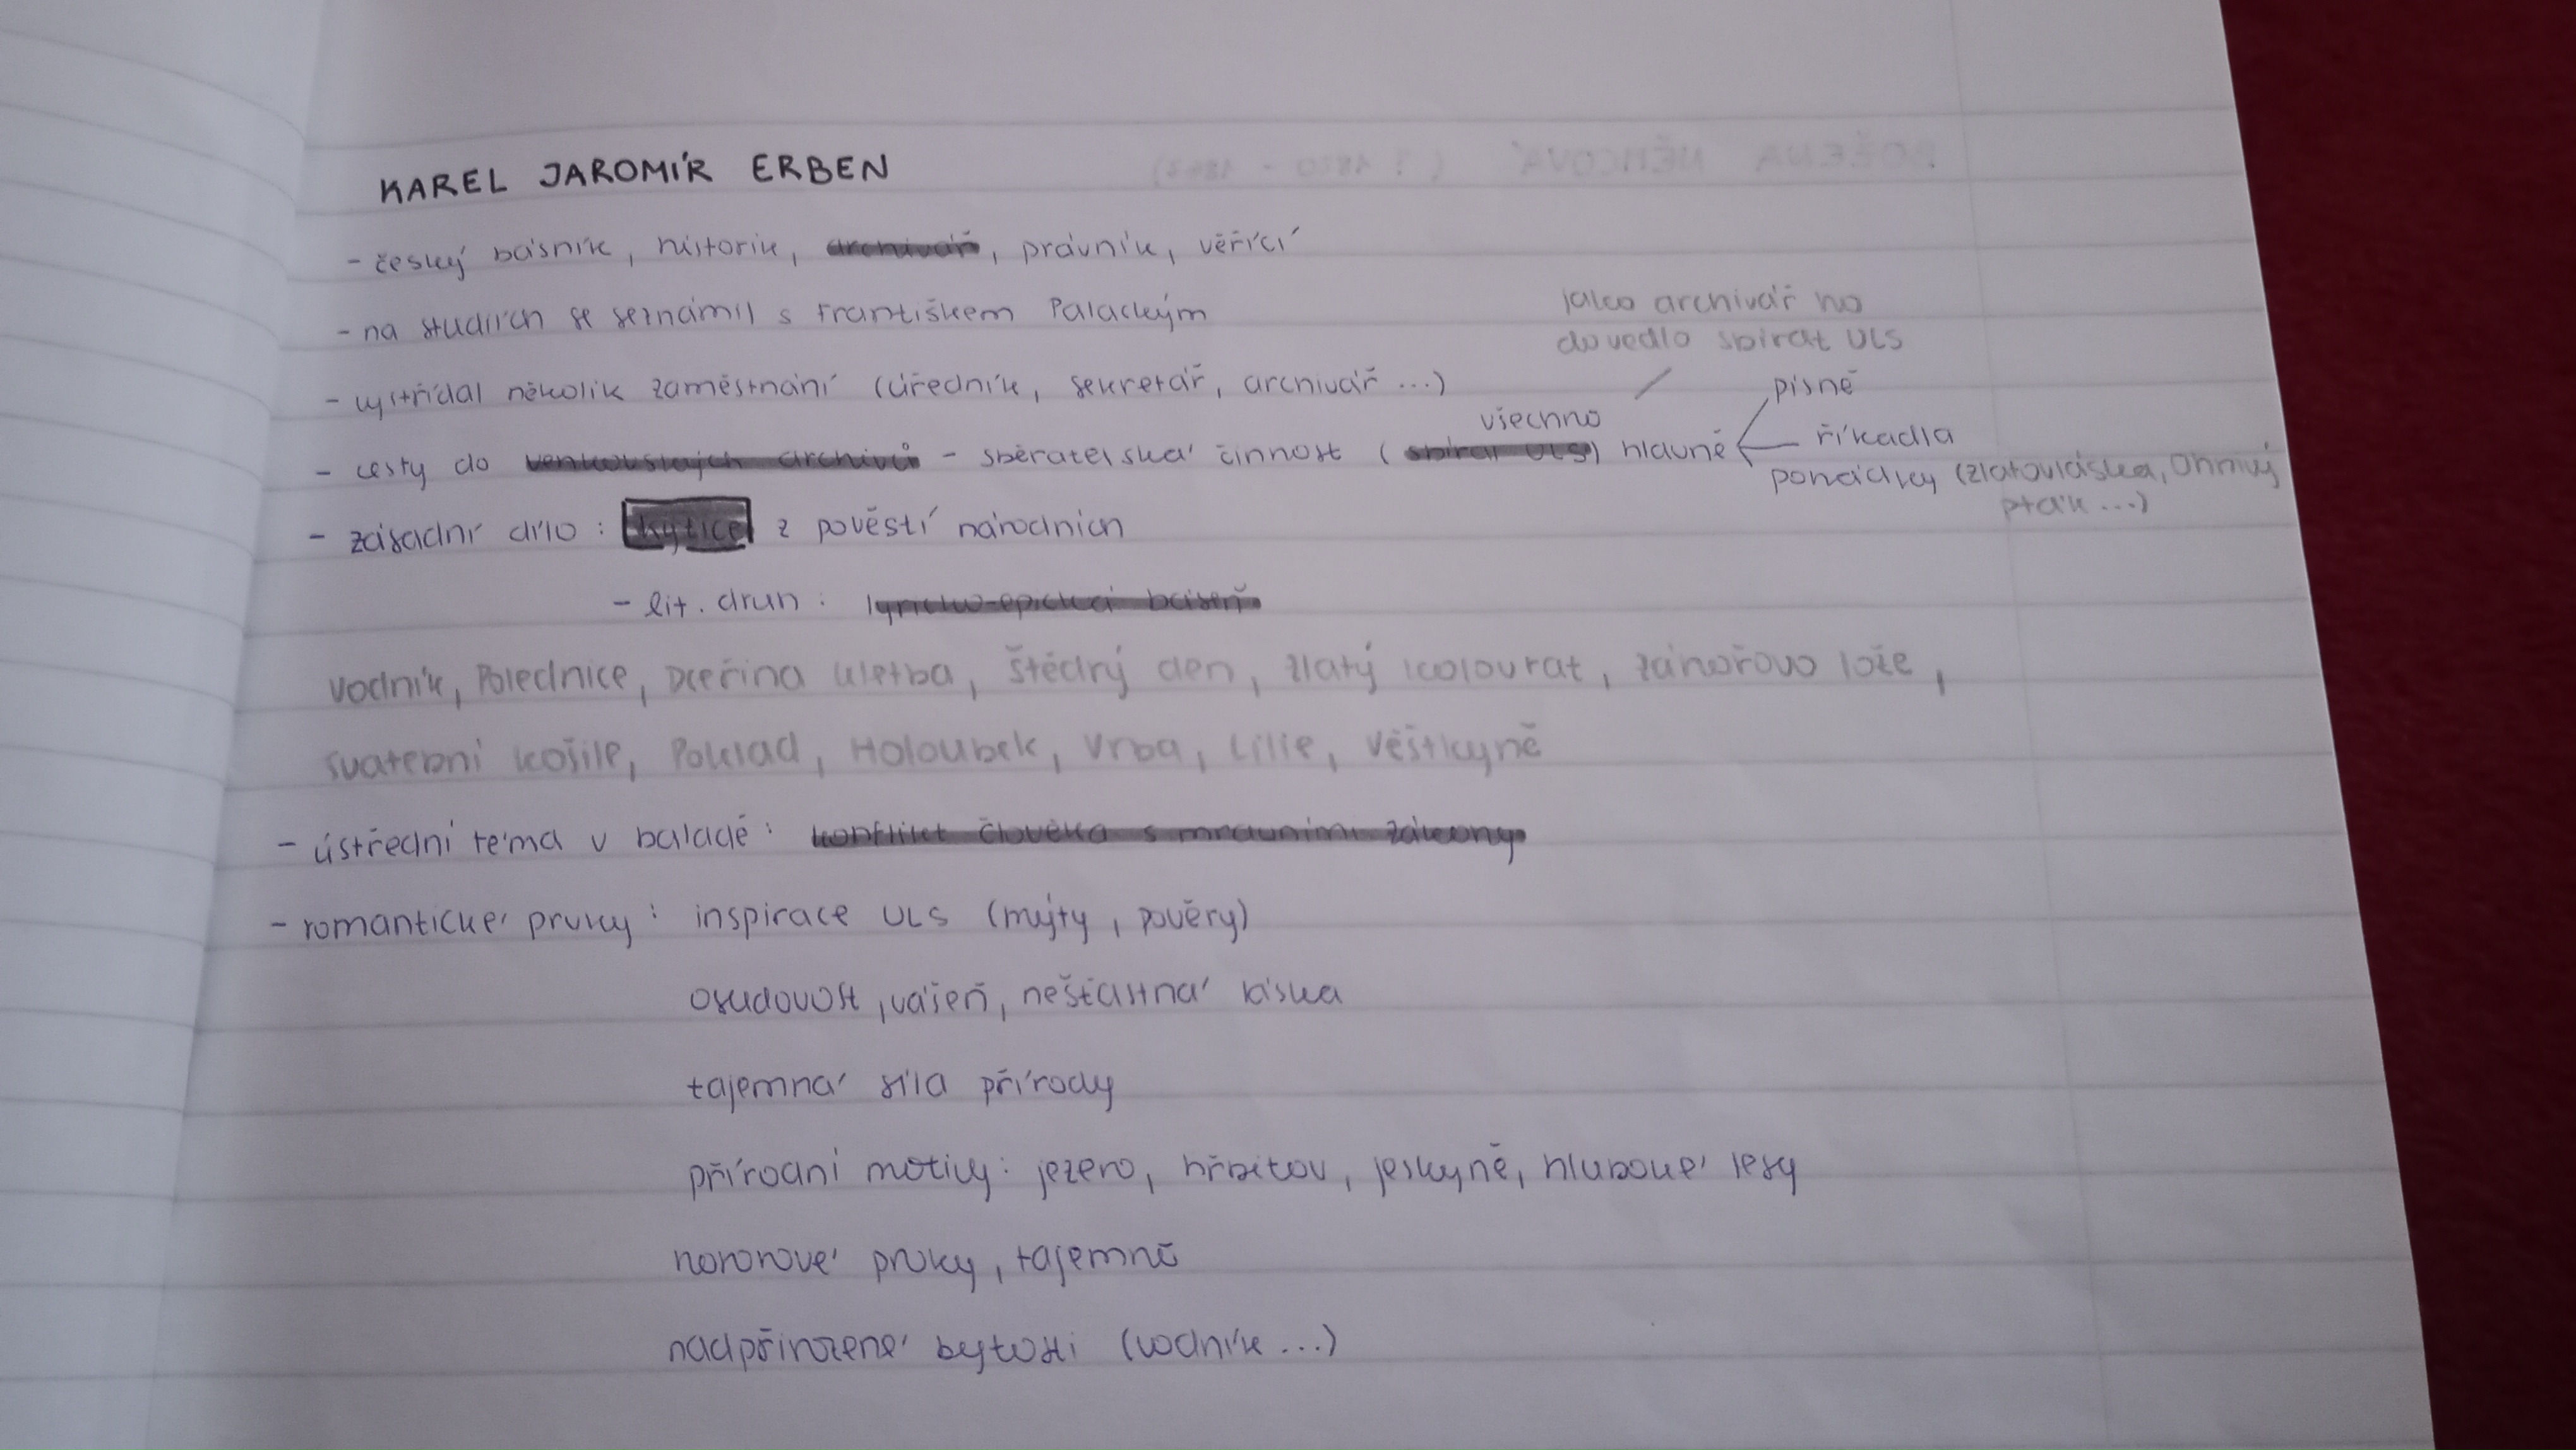 KAREL JAROMÍR ERBEN
- český básník, historik, archivář, právník, věřící
- na studiích se seznámil s Františkem Palackým
jako archivář ho
dovedlo sbírat ULS
- vystřídal několik zaměstnání (úředník, sekretář, archivář ...)
písně
všechno
- cesty do venkovských archivů - sběratelská činnost (sbíral ULS) hlavně
říkadla
pohádky (zlatovláska, Ohnivý
pták ...)
- zásadní dílo : Kytice z pověstí národních
- lit. druh : lyricko-epická báseň
Vodník, Polednice, Dceřina kletba, Štědrý den, Zlatý kolovrat, Záhořovo lože,
Svatební košile, Poklad, Holoubek, Vrba, Lilie, Věštkyně
- ústřední téma v baladě : konflikt člověka s mravními zákony
- romantické prvky : inspirace ULS (mýty, pověry)
osudovost, vášeň, nešťastná láska
tajemná síla přírody
přírodní motivy : jezero, hřbitov, jeskyně, hluboké lesy
hororové prvky, tajemno
nadpřirozené bytosti (vodník ...)